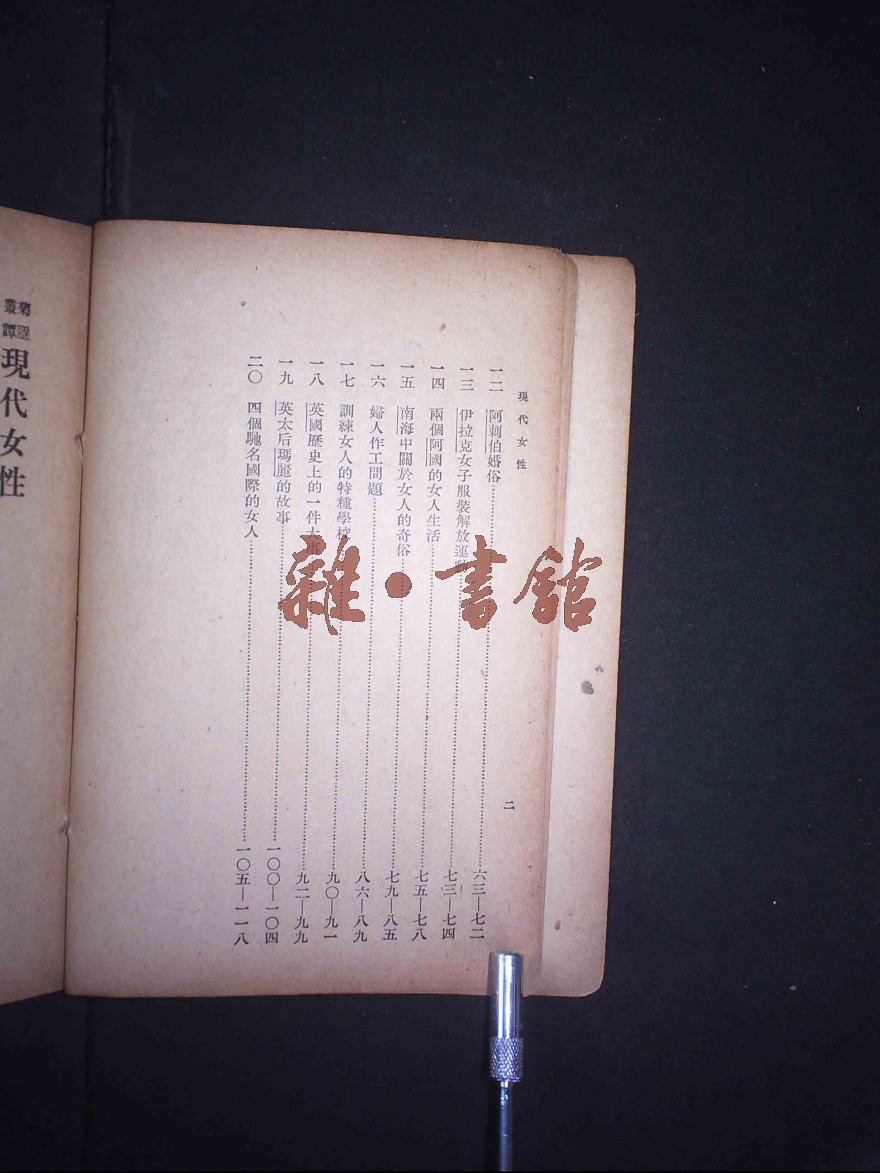 現代女性
二
一二 阿剌伯婚俗 六三—七二
一三 伊拉克女子服裝解放運動 七三—七四
一四 兩個阿國的女人生活 七五—七八
一五 南海中關於女人的奇俗 七九—八五
一六 婦人作工問題 八六—八九
一七 訓練女人的特種學校 九〇—九一
一八 英國歷史上的一件大事 九二—九九
一九 英太后瑪麗的故事 一〇〇—一〇四
二〇 四個馳名國際的女人 一〇五—一一八
叢譚
現代女性
雜·書館